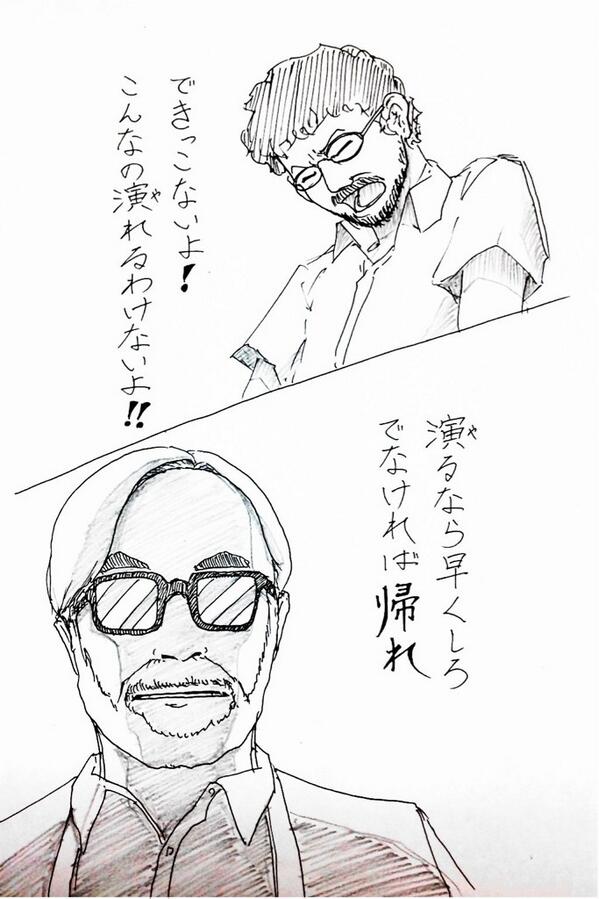 できっこないよ！
こんなの演れるわけないよ!!
演るなら早くしろ
でなければ帰れ